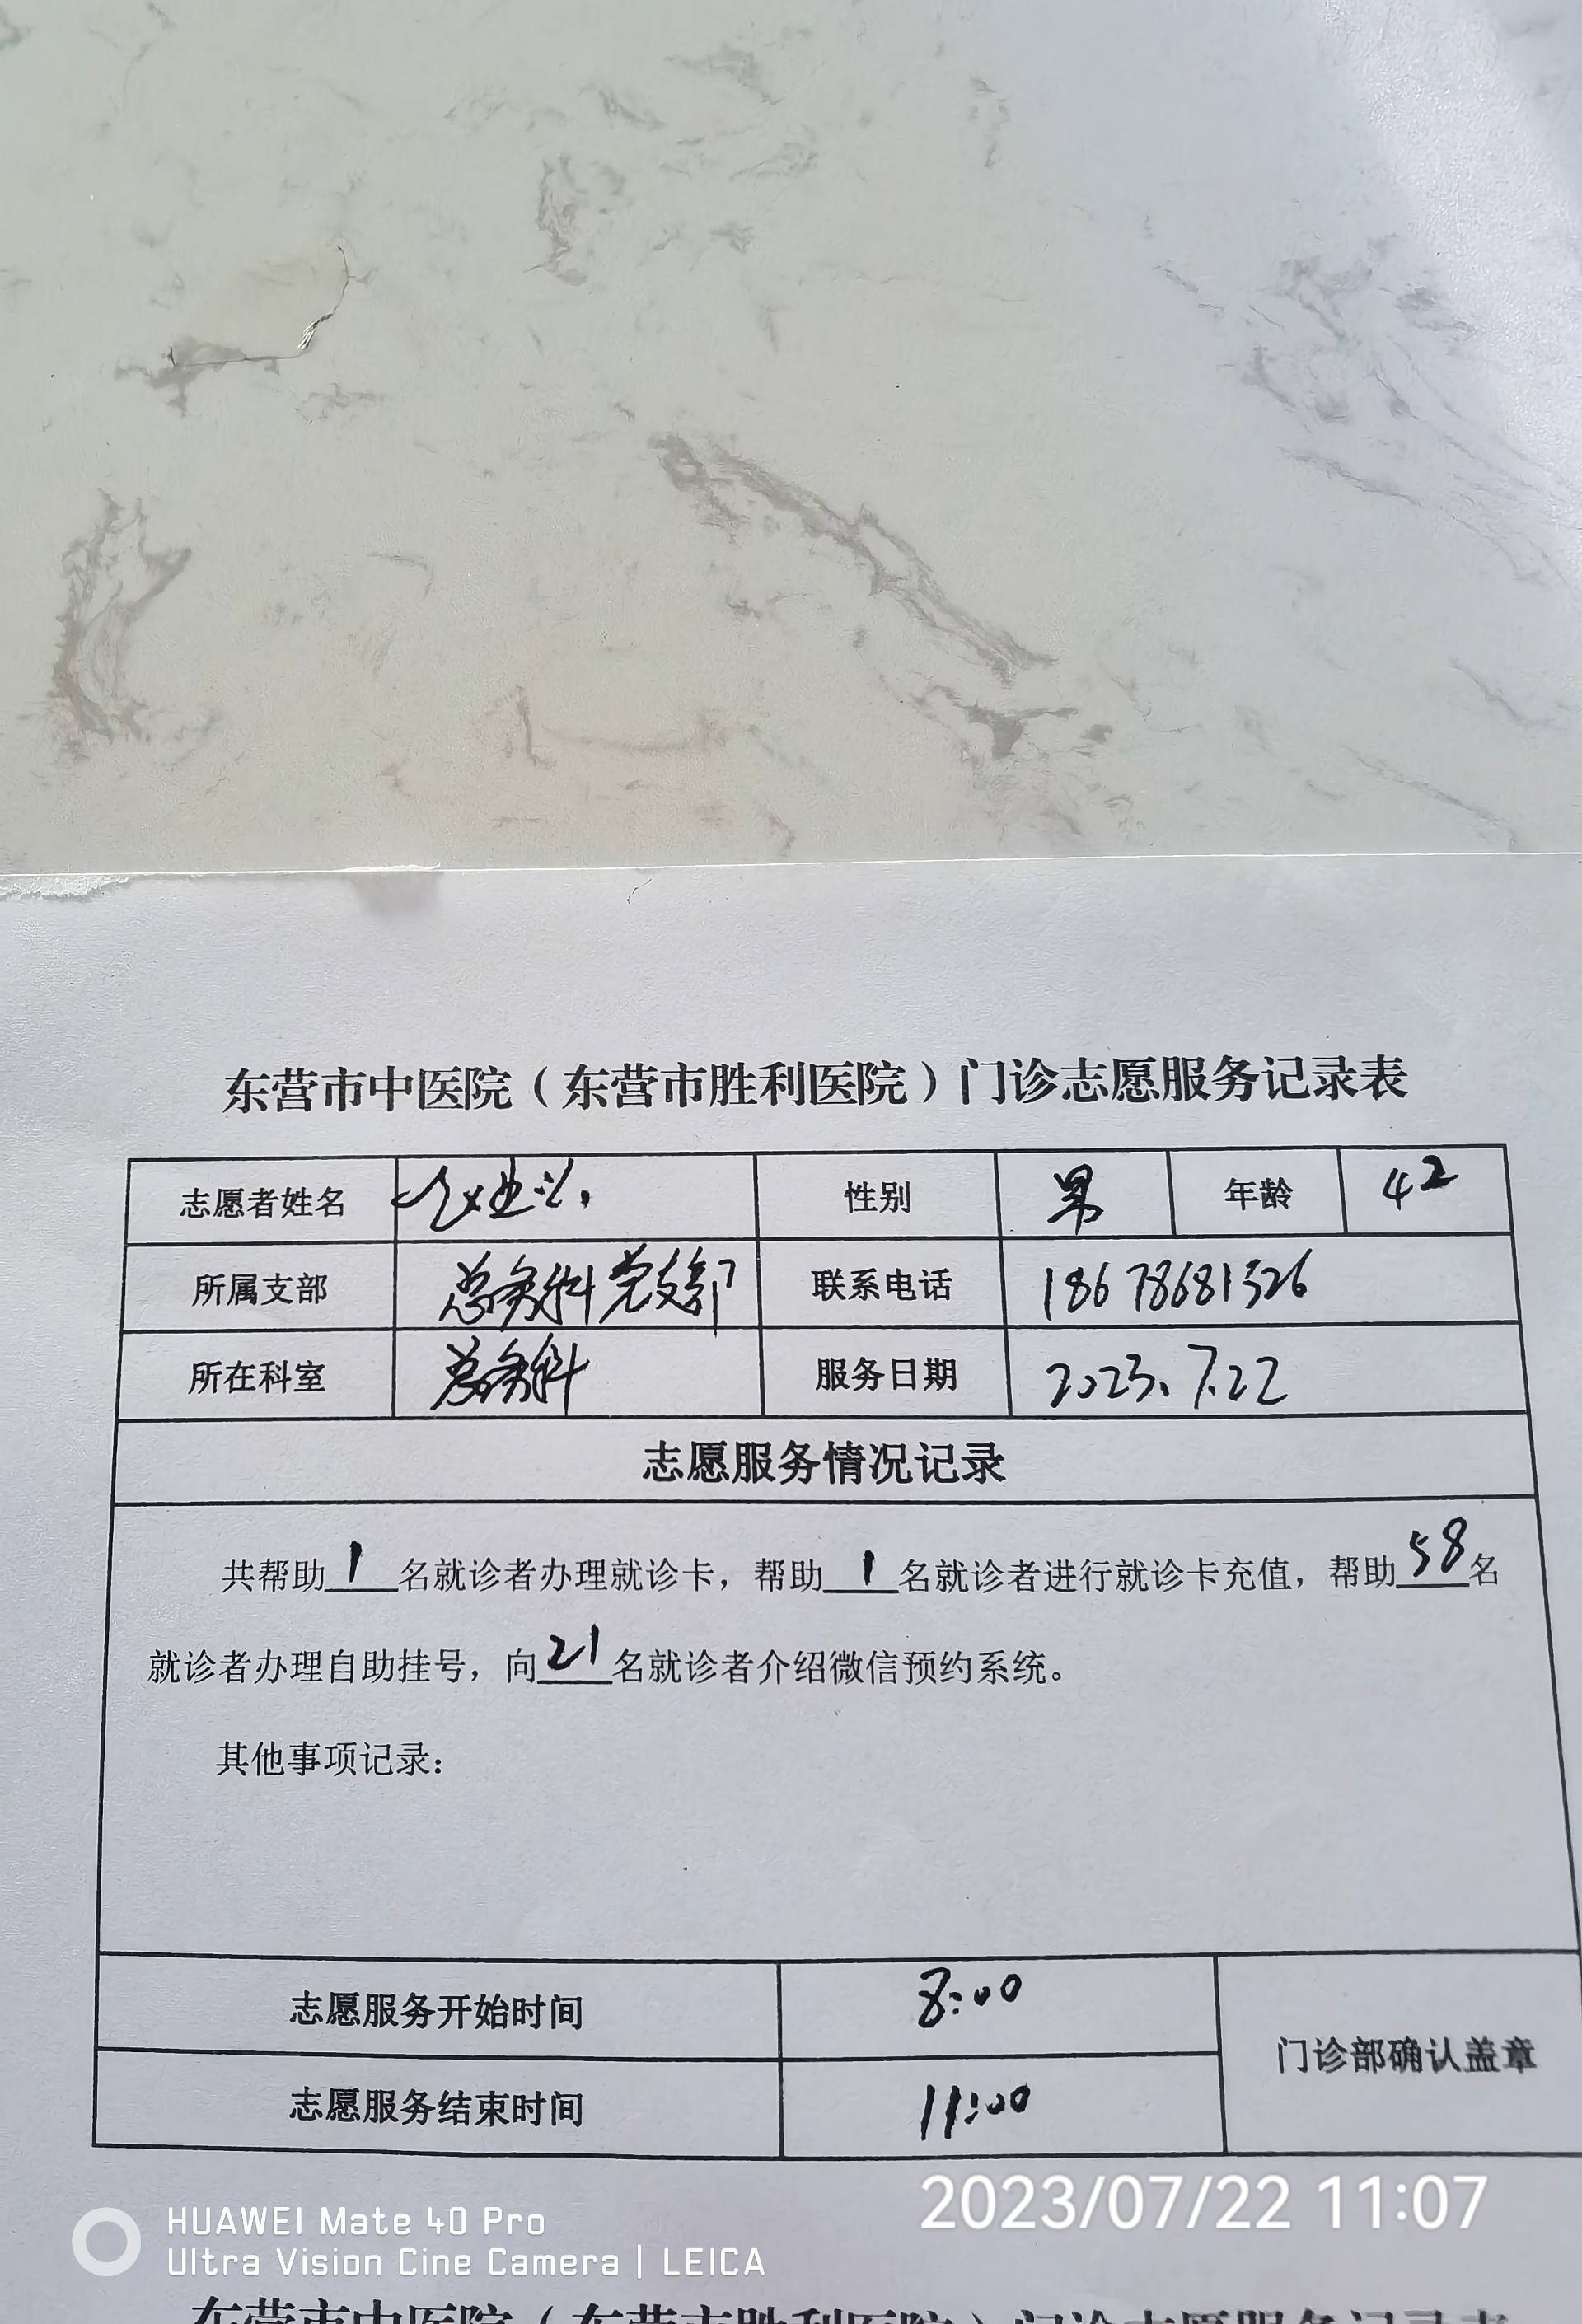 东营市中医院（东营市胜利医院）门诊志愿服务记录表
志愿者姓名 性别 男 年龄 42
所属支部 总务科党支部 联系电话 18678681526
所在科室 总务科 服务日期 2023.7.22
志愿服务情况记录
共帮助1名就诊者办理就诊卡，帮助1名就诊者进行就诊卡充值，帮助58名
就诊者办理自助挂号，向21名就诊者介绍微信预约系统。
其他事项记录：
志愿服务开始时间 8:00
门诊部确认盖章
志愿服务结束时间 11:00
2023/07/22 11:07
HUAWEI Mate 40 Pro
Ultra Vision Cine Camera | LEICA
东营市中医院（东营市胜利医院）门诊志愿服务记录表